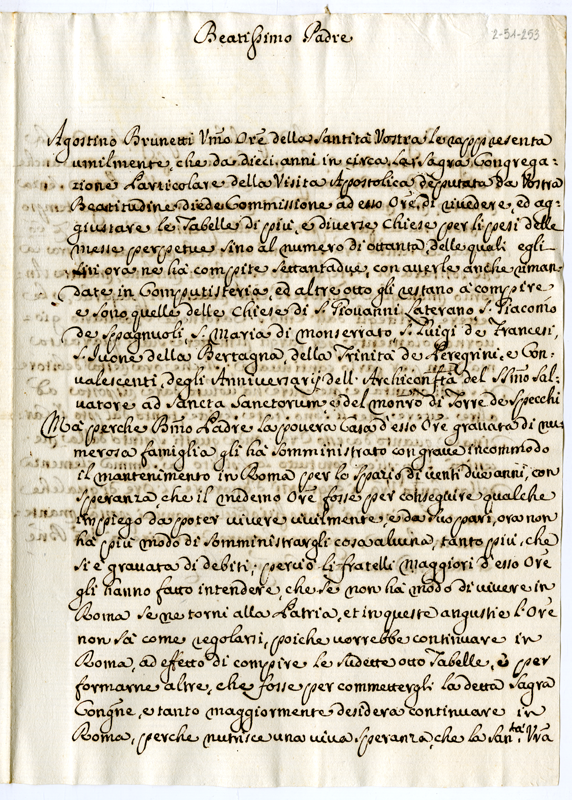 Beatissimo Padre
2-51-253
Agostino Brunetti Vmo Ore della Santità Vostra le rappresenta
umilmente, che da dieci anni in circa la Sagra Congrega-
zione Particolare della Visita Apostolica deputata da Vostra
Beatitudine diede Commissione ad esso Ore, di rivedere, ed ag-
giustare le Tabelle di più, e diverse Chiese per li pesi delle
messe perpetue sino al numero di ottanta, delle quali egli
sin ora ne hà compite settantadue, con averle anche riman-
date in Computisteria, ed altre otto gli restano à compire
e sono quelle delle Chiese di S. Giovanni Laterano S. Giacomo
de Spagnuoli, S. Maria di Monserrato, S. Luigi de Francesi,
S. Ivone della Bertagna, della Trinità de Peregrini, e Con-
valescenti, degli Anniversarij dell'Archiconftà del SSmo Sal-
vatore ad Sancta Sanctorum e del monro di Torre de Specchi
Mà perche Bmo Padre la povera Casa d'esso Ore gravata di nu-
merosa famiglia gli hà somministrato con grave incommodo
il mantenimento in Roma per lo spazio di venti due anni, con
speranza, che il medemo Ore fosse per conseguire qualche
impiego da poter vivere civilmente, e da suo pari, ora non
hà più modo di somministrargli cosa alcuna, tanto più, che
si è gravata di debiti; perciò li fratelli maggiori d'esso Ore
gli hanno fatto intendere, che se non hà modo di vivere in
Roma se ne torni alla Patria, et in queste angustie l'Ore
non sà come regolarsi, poiche vorrebbe continuare in
Roma, ad effetto di compire le sudette otto Tabelle, e per
formarne altre, che fosse per commettergli la detta Sagra
Congne, e tanto maggiormente desidera continuare in
Roma, perche nutrisce una viva speranza, che la Santà Vra